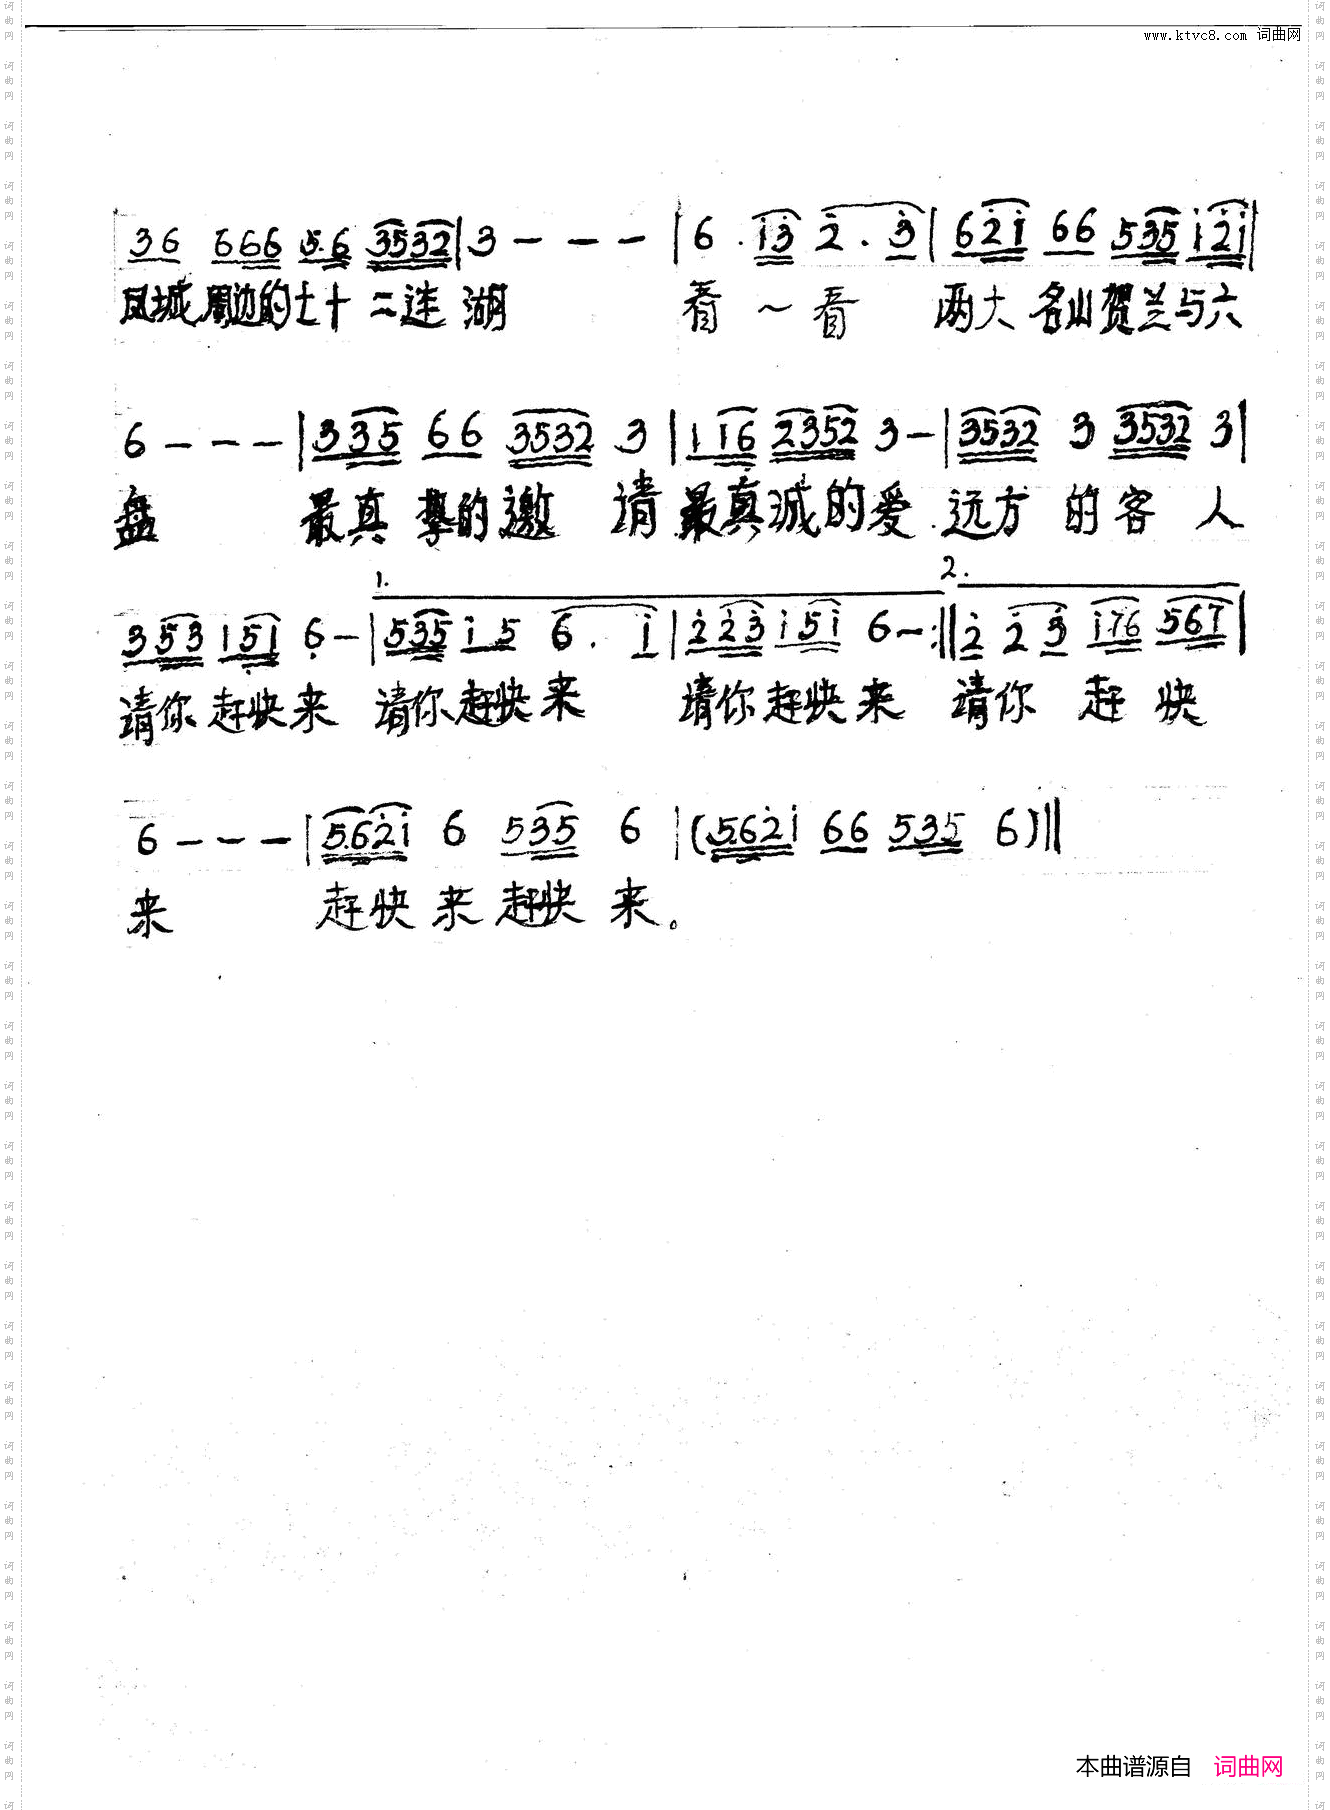 www.ktvc8.com 词曲网
36 666 5·6 3532 | 3 - - - | 6 . i3 2 . 3 | 62i 66 535 i2i |
凤城周边的七十二连湖 看~看 两大名山贺兰与六
6 - - - | 335 66 3532 3 | 1 16 2352 3 - | 3532 3 3532 3 |
盘 最真挚的邀请 最真诚的爱 远方的客人
1. 2.
353 151 6 - | 535 i5 6 . i | 223 i5i 6 - :|| 2 23 i76 567 |
请你赶快来 请你赶快来 请你赶快来 请你赶快
6 - - - | 562i 6 535 6 | (562i 66 535 6) ||
来 赶快来赶快来。
本曲谱源自 词曲网